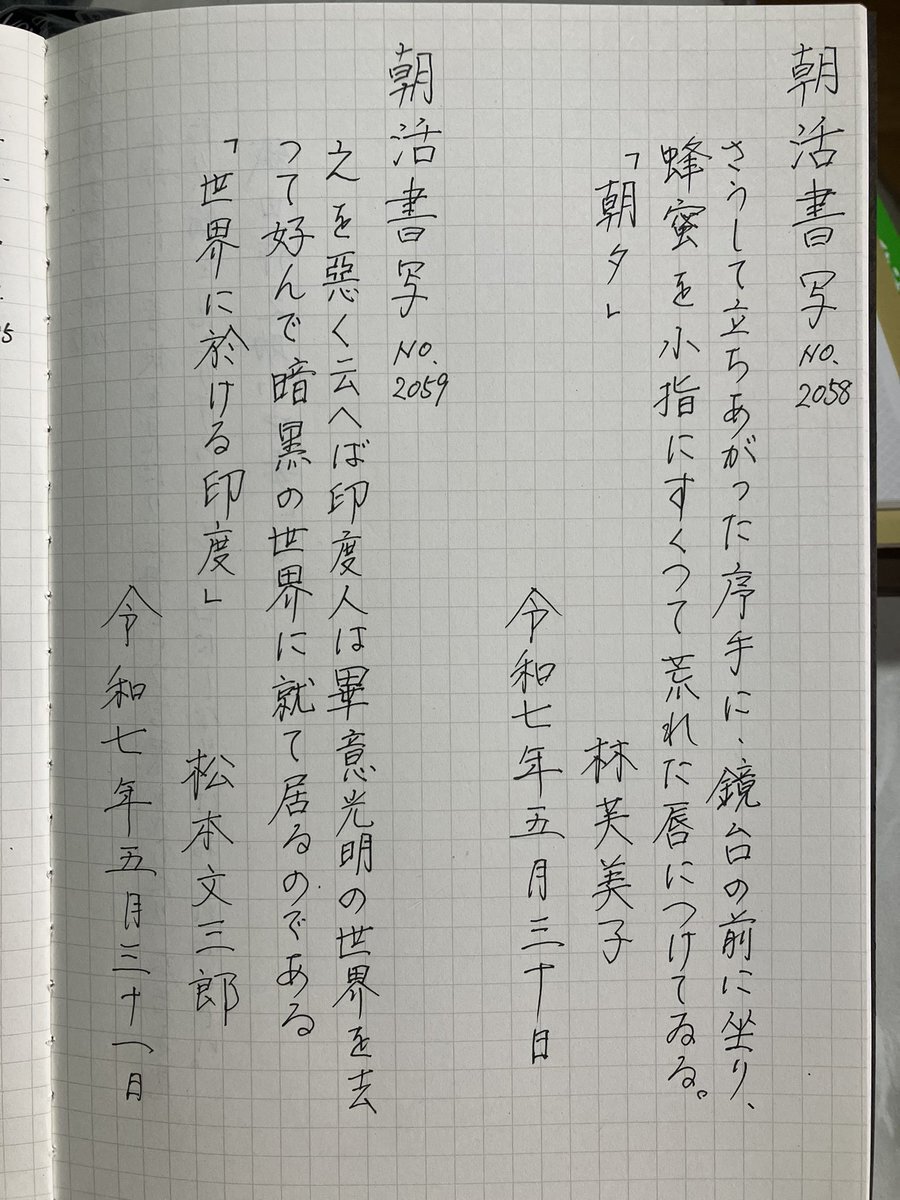 朝活書写 NO. 2058
さうして立ちあがった序手に、鏡台の前に坐り、
蜂蜜を小指にすくつて荒れた唇につけてゐる。
「朝夕」
林芙美子
令和七年五月三十日
朝活書写 NO. 2059
之を惡く云へば印度人は畢意光明の世界を去
つて好んで暗黒の世界に就て居るのである
「世界に於ける印度」
松本文三郎
令和七年五月三十一日